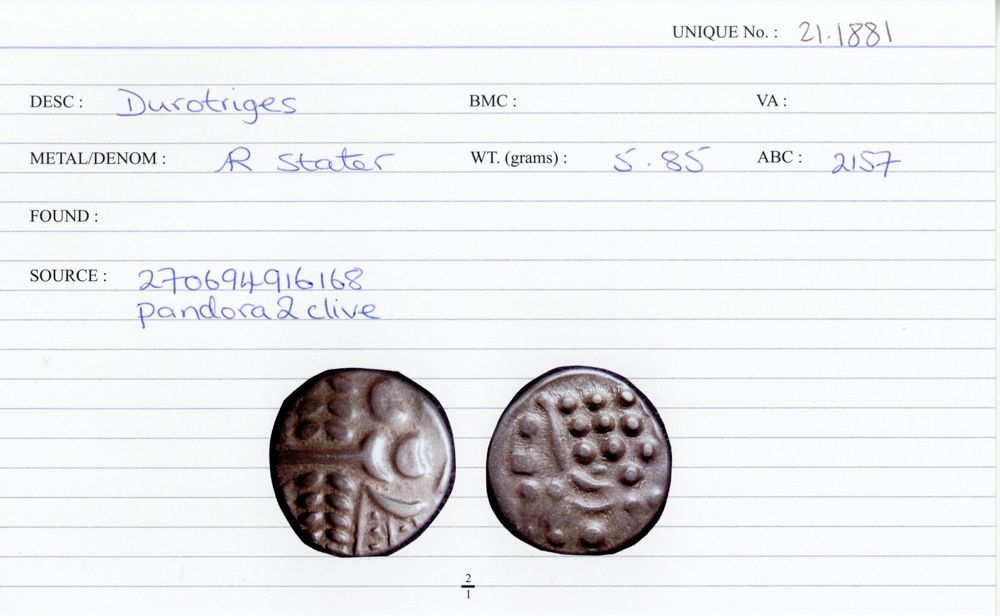 UNIQUE No. : 21.1881
DESC : Durotriges BMC : VA :
METAL/DENOM : AR Stater WT. (grams) : 5.85 ABC : 2157
FOUND :
SOURCE : 270694916168
pandora2clive
2
1